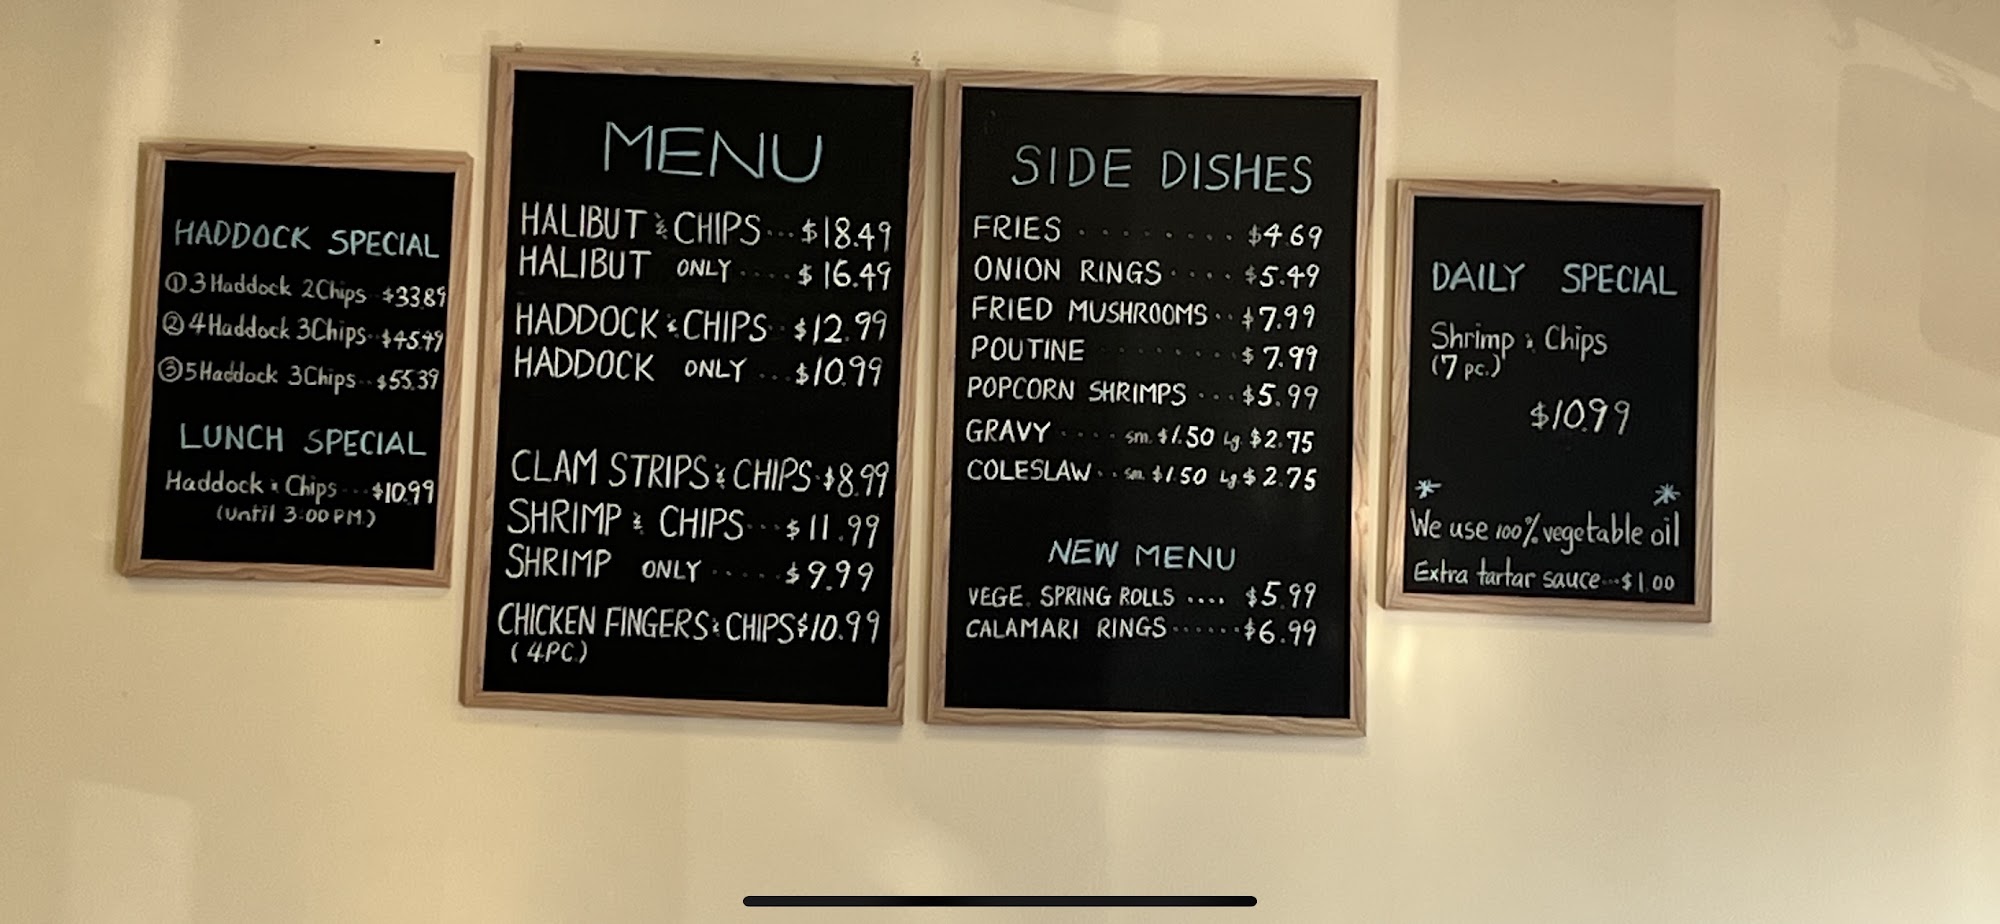 HADDOCK SPECIAL
① 3 Haddock 2 Chips $33.89
② 4 Haddock 3 Chips $45.49
③ 5 Haddock 3 Chips $55.39
LUNCH SPECIAL
Haddock & Chips $10.99
(until 3:00 P.M.)
MENU
HALIBUT & CHIPS $18.49
HALIBUT ONLY $16.49
HADDOCK & CHIPS $12.99
HADDOCK ONLY $10.99
CLAM STRIPS & CHIPS $8.99
SHRIMP & CHIPS $11.99
SHRIMP ONLY $9.99
CHICKEN FINGERS & CHIPS $10.99
(4PC.)
SIDE DISHES
FRIES $4.69
ONION RINGS $5.49
FRIED MUSHROOMS $7.99
POUTINE $7.99
POPCORN SHRIMPS $5.99
GRAVY sm. $1.50 Lg. $2.75
COLESLAW sm. $1.50 Lg. $2.75
NEW MENU
VEGE. SPRING ROLLS $5.99
CALAMARI RINGS $6.99
DAILY SPECIAL
Shrimp & Chips
(7 pc.)
$10.99
We use 100% vegetable oil
Extra tartar sauce $1.00